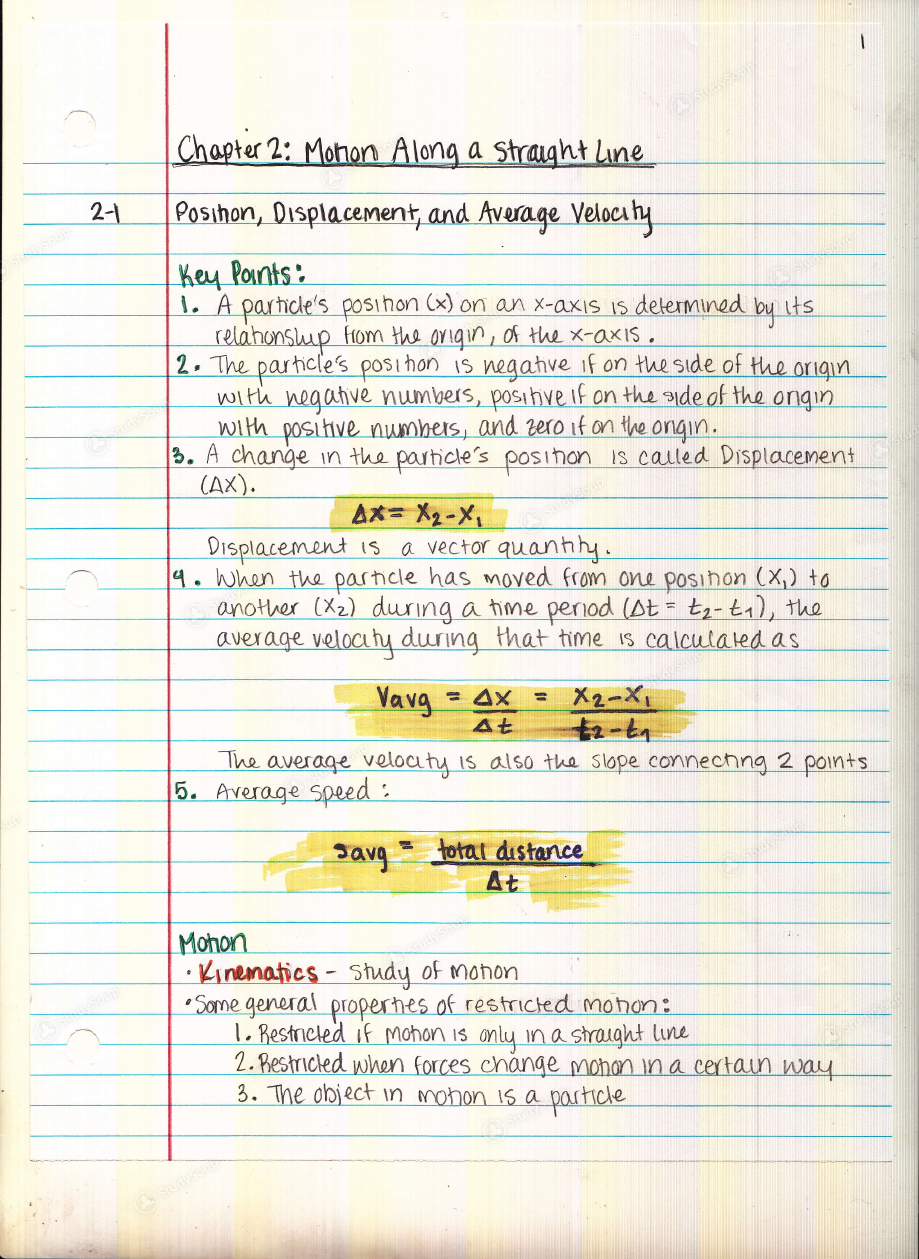 1
Chapter 2: Motion Along a Straight Line
2-1 Position, Displacement, and Average Velocity
Key Points:
1. A particle's position (x) on an x-axis is determined by its
relationship from the origin, of the x-axis.
2. The particle's position is negative if on the side of the origin
with negative numbers, positive if on the side of the origin
with positive numbers, and zero if on the origin.
3. A change in the particle's position is called Displacement
(Δx).
Δx = x₂-x₁
Displacement is a vector quantity.
4. When the particle has moved from one position (x₁) to
another (x₂) during a time period (Δt = t₂-t₁), the
average velocity during that time is calculated as
Vavg = Δx/Δt = x₂-x₁/t₂-t₁
The average velocity is also the slope connecting 2 points
5. Average speed:
savg = total distance/Δt
Motion
• Kinematics - study of motion
• Some general properties of restricted motion:
1. Restricted if motion is only in a straight line
2. Restricted when forces change motion in a certain way
3. The object in motion is a particle
StudySoup